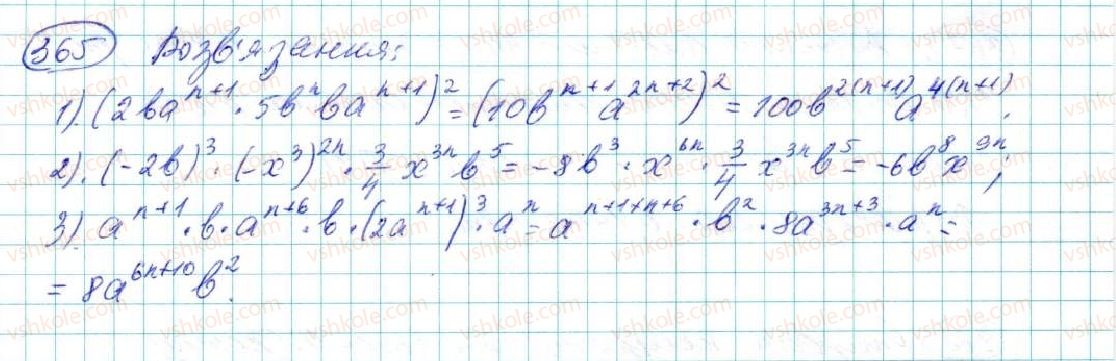 365 Розв'язання:
1). (2ba^{n+1} · 5b^{n}ba^{n+1})^{2} = (10b^{n+1}a^{2n+2})^{2} = 100b^{2(n+1)}a^{4(n+1)};
2). (-2b)^{3} · (-x^{3})^{2n} · \frac{3}{4} x^{3n} b^{5} = -8b^{3} · x^{6n} · \frac{3}{4} x^{3n} b^{5} = -6b^{8}x^{9n};
3). a^{n+1} · b · a^{n+6} · b · (2a^{n+1})^{3} · a^{n} = a^{n+1+n+6} · b^{2} · 8a^{3n+3} · a^{n} =
= 8a^{6n+10}b^{2}.